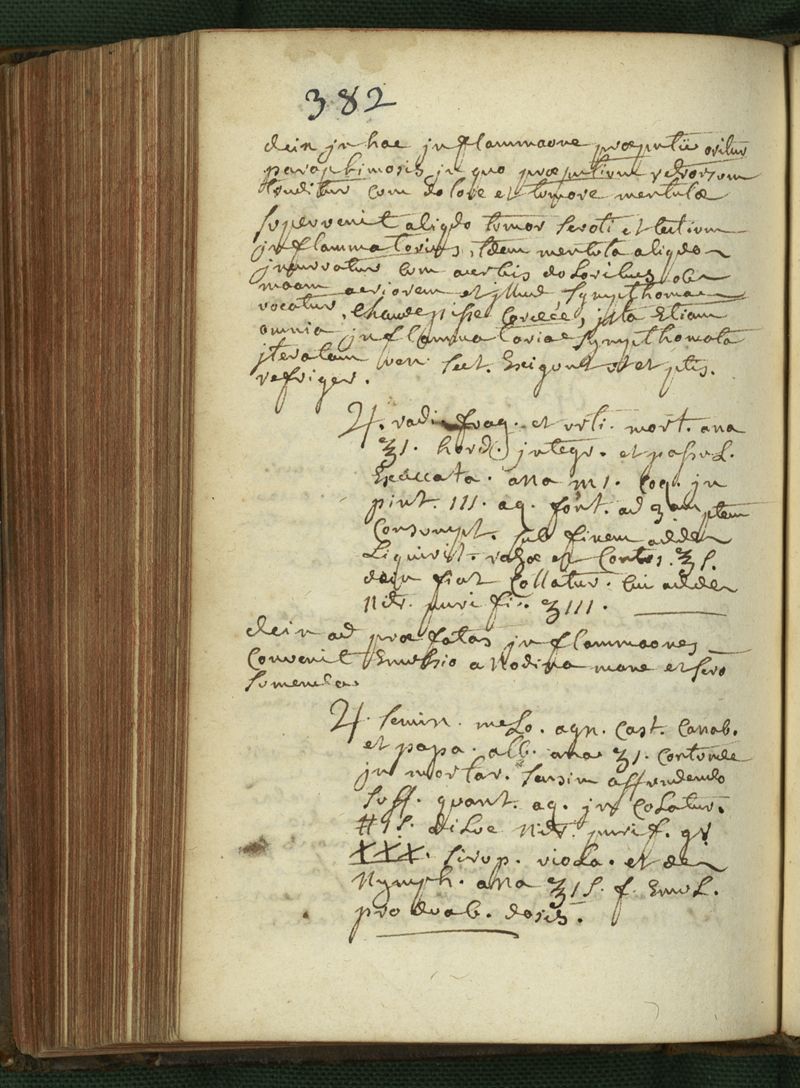 382
dein in hac inflammaone præputii oritur
paraphimosis in quo præputium retrorsum
truditur com dolore et tumore mentulæ
supervenit aliqdo tumor scroti et testium
inflammatorius, idem mentula aliqdo
incurvatur com acerbis doloribus ob
acriorem et illud symptoma
vocatur, chaudepisse cordeé, ista etiam
omnia inflammatoriae symphomata
iteratam ven. sect. exigunt et ptis.
refriger.
♃. radi. frag. et urti. mort. ana
℥1. hord. integr. et passul.
exaccata. ana m1. coq. in
pint. III. aq. font. ad 3am ptem
consumpt. sub finem adde
Liquirit. rasæ et contus. ℥s.
dein fiat collatur. cui adde
nitr. purifi. ʒIII.
dein ad præfatas inflammaones
convenit emulsio anodina mane et sero
sumenda.
♃. semin. melo. agn. cast. canab.
et papa. alb. ana ʒ1. contunde
in mortar. sensim affundendo
suff. quant. aq. in colatur.
diluc nitr. purif. gr
XXX. sirop. viola. et de
Nymph. ana ℥1s. f. emul.
pro duab. dosis.